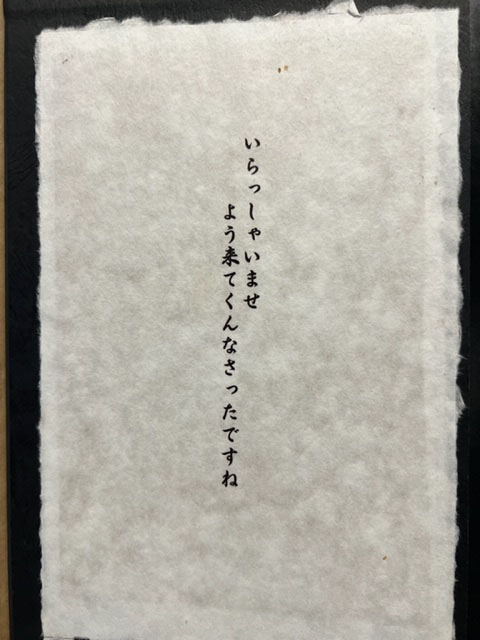 いらっしゃいませ
よう来てくんなさったですね